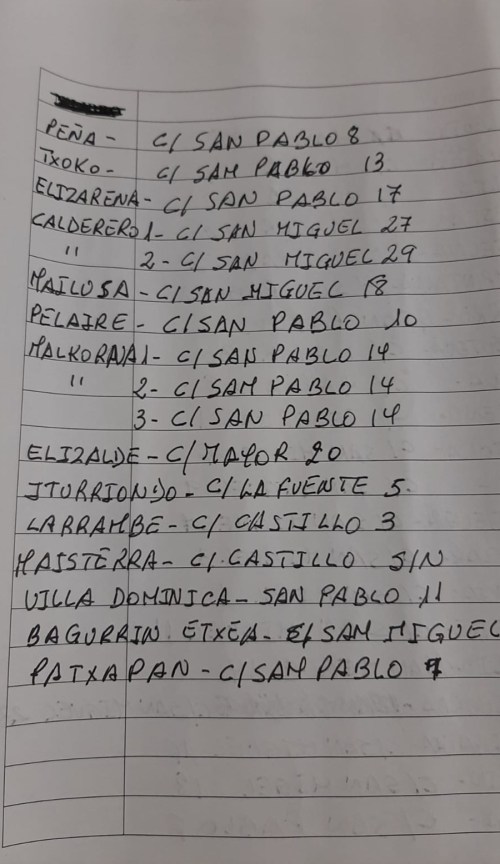 PEÑA - C/ SAN PABLO 8
TXOKO - C/ SAN PABLO 13
ELIZARENA - C/ SAN PABLO 17
CALDERERO 1 - C/ SAN MIGUEL 27
" 2 - C/ SAN MIGUEL 29
MAILUSA - C/ SAN MIGUEL 18
PELAIRE - C/ SAN PABLO 10
MALKORNA 1 - C/ SAN PABLO 14
" 2 - C/ SAN PABLO 14
3 - C/ SAN PABLO 14
ELIZALDE - C/ MAYOR 20
ITURRIONDO - C/ LA FUENTE 5.
LARRAMBE - C/ CASTILLO 3
MAISTERRA - C/ CASTILLO S/N
VILLA DOMINICA - SAN PABLO 11
BAGURRIN ETXEA - C/ SAN MIGUEL
PATXAPAN - C/ SAN PABLO 7